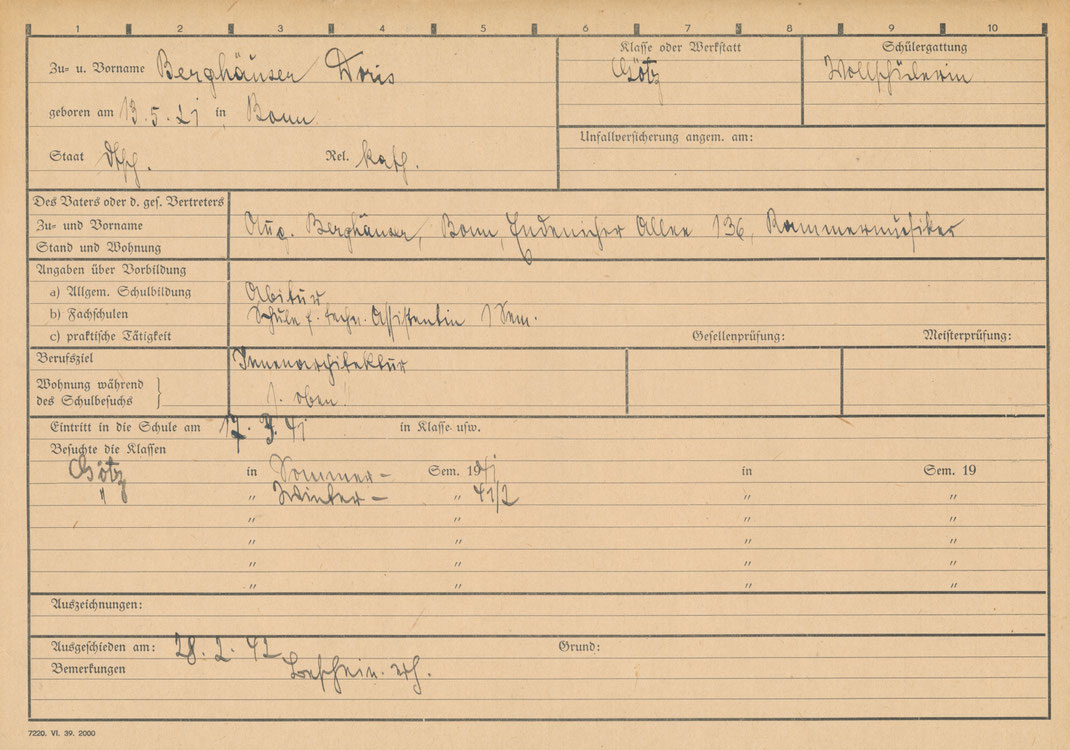 1 2 3 4 5 6 7 8 9 10
Klasse oder Werkstatt Schülergattung
Zu- u. Vorname Berghäuser Doris Götz Vollschülerin
geboren am 13.5.21 in Bonn
Unfallversicherung angem. am:
Staat Dtsch. Rel. kath.
Des Vaters oder d. ges. Vertreters
Zu- und Vorname Aug. Berghäuser, Bonn, Endenicher Allee 136, Kammermusiker
Stand und Wohnung
Angaben über Vorbildung
a) Allgem. Schulbildung Abitur
b) Fachschulen Schule f. techn. Assistentin 1 Sem.
c) praktische Tätigkeit Gesellenprüfung: Meisterprüfung:
Berufsziel Innenarchitektur
Wohnung während
des Schulbesuchs } s. oben!
Eintritt in die Schule am 17. 3. 41 in Klasse usw.
Besuchte die Klassen
Götz in Sommer- Sem. 1941 in Sem. 19
" " Winter- " 41/2 " "
" " " "
" " " "
" " " "
" " " "
Auszeichnungen:
Ausgeschieden am: 28. 2. 42 Grund:
Bemerkungen erh.
7220. VI. 39. 2000